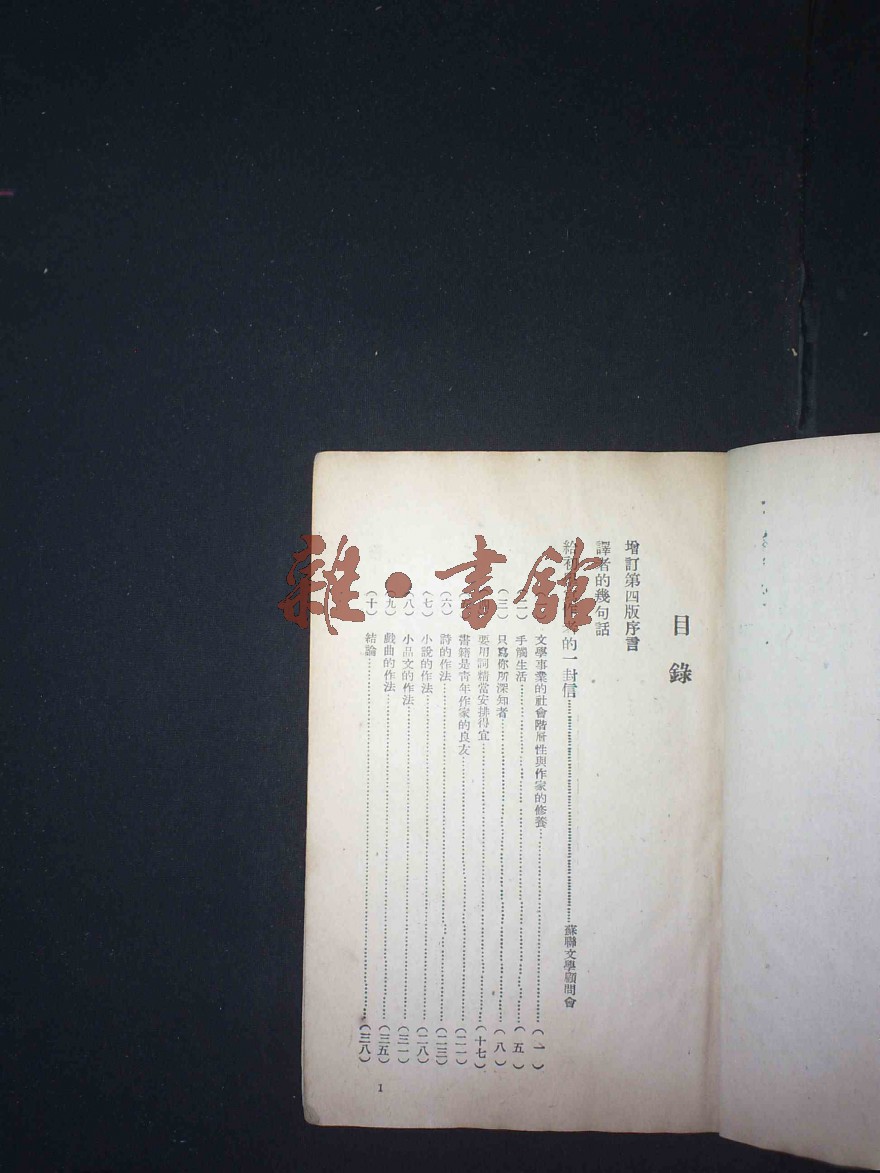 目錄
增訂第四版序言
譯者的幾句話
給初 的一封信……蘇聯文學顧問會
文學事業的社會階層性與作家的修養……（一）
（二）手觸生活……（五）
（三）只寫你所深知者……（八）
要用詞精當安排得宜……（十七）
書籍是青年作家的良友……（二一）
（六）詩的作法……（二三）
（七）小說的作法……（二八）
（八）小品文的作法……（三一）
（九）戲曲的作法……（三五）
（十）結論……（三八）
1
雜·書館